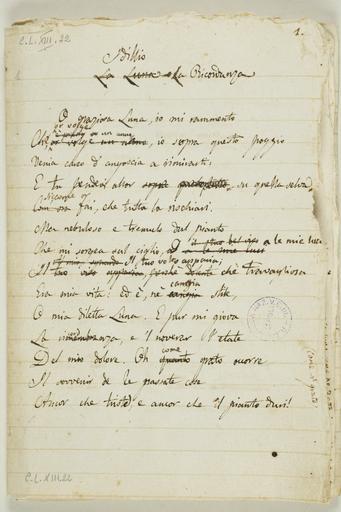 C.L.XIII.22
1.
Idillio
La Luna o La Ricordanza
O graziosa Luna, io mi rammento
or volge
è presso or un anno
Che, or volge un anno, io sopra questo poggio
Venia carco d'angoscia a rimirarti:
E tu pendevi allor sopra su quella selva
Siccome or
Com' or fai, che tutta la rischiari.
Ma nebuloso e tremulo dal pianto
Che mi sorgea sul ciglio, a le mie luci
Il tuo volto apparia;
Il tuo viso apparia, perchè che travagliosa
cangia
Era mia vita: ed è, nè cangia stile,
O mia diletta Luna. E pur mi giova
La rimembranza, e il noverar l'etate
come
Del mio dolore. Oh quanto grato occorre
Il sovvenir de le passate cose
Ancor che triste, e ancor che il pianto duri!
C.L.XIII.22